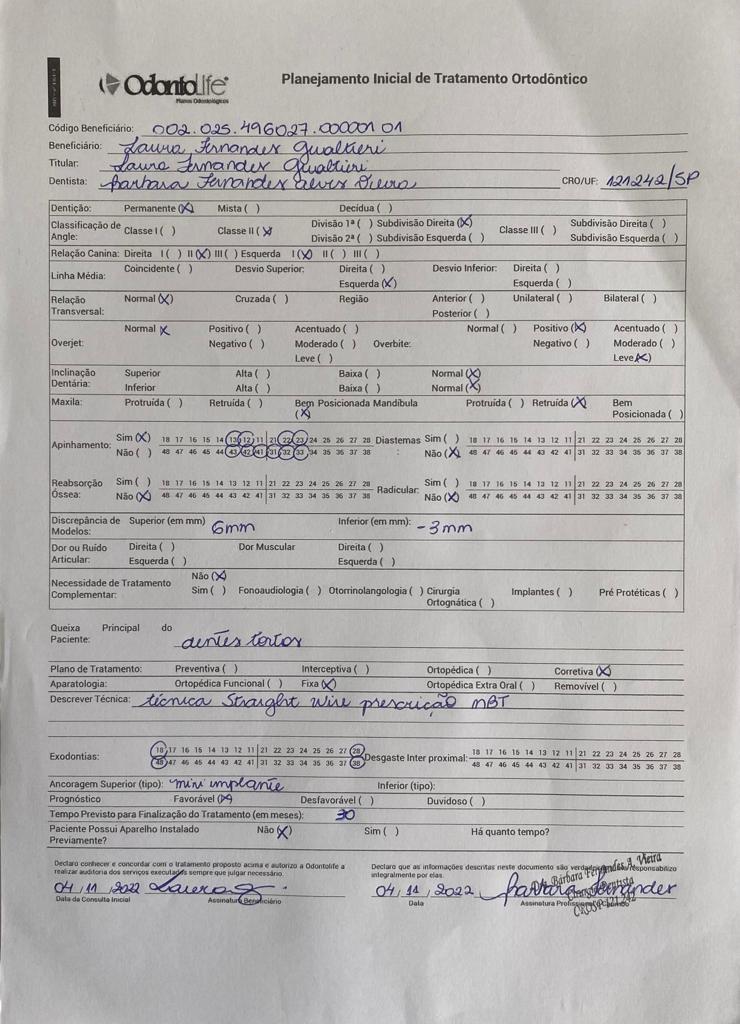 OdontoLife
Planos Odontológicos
Planejamento Inicial de Tratamento Ortodôntico
Código Beneficiário: 002.025.496027.000001 01
Beneficiário: Laura Fernandes Gualtieri
Titular: Laura Fernandes Gualtieri
Dentista: Barbara Fernandes Alves Vieira CRO/UF: 121242/SP
Dentição: Permanente (X) Mista ( ) Decídua ( )
Classificação de Angle: Classe I ( ) Classe II (X) Divisão 1ª ( ) Subdivisão Direita (X) Classe III ( ) Subdivisão Direita ( )
Divisão 2ª ( ) Subdivisão Esquerda ( ) Subdivisão Esquerda ( )
Relação Canina: Direita I ( ) II (X) III ( ) Esquerda I (X) II ( ) III ( )
Linha Média: Coincidente ( ) Desvio Superior: Direita ( ) Desvio Inferior: Direita ( )
Esquerda (X) Esquerda ( )
Relação Transversal: Normal (X) Cruzada ( ) Região Anterior ( ) Unilateral ( ) Bilateral ( )
Posterior ( )
Overjet: Normal X Positivo ( ) Acentuado ( ) Overbite: Normal ( ) Positivo (X) Acentuado ( )
Negativo ( ) Moderado ( ) Negativo ( ) Moderado ( )
Leve ( ) Leve (X)
Inclinação Dentária: Superior Alta ( ) Baixa ( ) Normal (X)
Inferior Alta ( ) Baixa ( ) Normal (X)
Maxila: Protruída ( ) Retruída ( ) Bem Posicionada (X) Mandíbula Protruída ( ) Retruída (X) Bem Posicionada ( )
Apinhamento: Sim (X) 18 17 16 15 14 13 12 11 21 22 23 24 25 26 27 28 Diastemas: Sim ( ) 18 17 16 15 14 13 12 11 21 22 23 24 25 26 27 28
Não ( ) 48 47 46 45 44 43 42 41 31 32 33 34 35 36 37 38 Não (X) 48 47 46 45 44 43 42 41 31 32 33 34 35 36 37 38
Reabsorção Óssea: Sim ( ) 18 17 16 15 14 13 12 11 21 22 23 24 25 26 27 28 Radicular: Sim ( ) 18 17 16 15 14 13 12 11 21 22 23 24 25 26 27 28
Não (X) 48 47 46 45 44 43 42 41 31 32 33 34 35 36 37 38 Não (X) 48 47 46 45 44 43 42 41 31 32 33 34 35 36 37 38
Discrepância de Modelos: Superior (em mm) 6mm Inferior (em mm): -3mm
Dor ou Ruído Articular: Direita ( ) Dor Muscular Direita ( )
Esquerda ( ) Esquerda ( )
Necessidade de Tratamento Complementar: Não (X)
Sim ( ) Fonoaudiologia ( ) Otorrinolangologia ( ) Cirurgia Ortognática ( ) Implantes ( ) Pré Protéticas ( )
Queixa Principal do Paciente: dentes tortos
Plano de Tratamento: Preventiva ( ) Interceptiva ( ) Ortopédica ( ) Corretiva (X)
Aparatologia: Ortopédica Funcional ( ) Fixa (X) Ortopédica Extra Oral ( ) Removível ( )
Descrever Técnica: técnica Straight Wire prescrição MBT
Exodontias: 18 17 16 15 14 13 12 11 21 22 23 24 25 26 27 28 Desgaste Inter proximal: 18 17 16 15 14 13 12 11 21 22 23 24 25 26 27 28
48 47 46 45 44 43 42 41 31 32 33 34 35 36 37 38 48 47 46 45 44 43 42 41 31 32 33 34 35 36 37 38
Ancoragem Superior (tipo): mini implante Inferior (tipo):
Prognóstico Favorável (X) Desfavorável ( ) Duvidoso ( )
Tempo Previsto para Finalização do Tratamento (em meses): 30
Paciente Possui Aparelho Instalado Previamente? Não (X) Sim ( ) Há quanto tempo?
Declaro conhecer e concordar com o tratamento proposto acima e autorizo a Odontolife a realizar auditoria dos serviços executados sempre que julgar necessário.
Declaro que as informações descritas neste documento são verdadeiras responsabilizo integralmente por elas.
04, 11, 2022 Laura
Data da Consulta Inicial Assinatura Beneficiário
04, 11, 2022 Barbara Fernandes
Data Assinatura
Dra. Bárbara Fernandes A. Vieira
Cirurgiã Dentista
CROSP 121.242